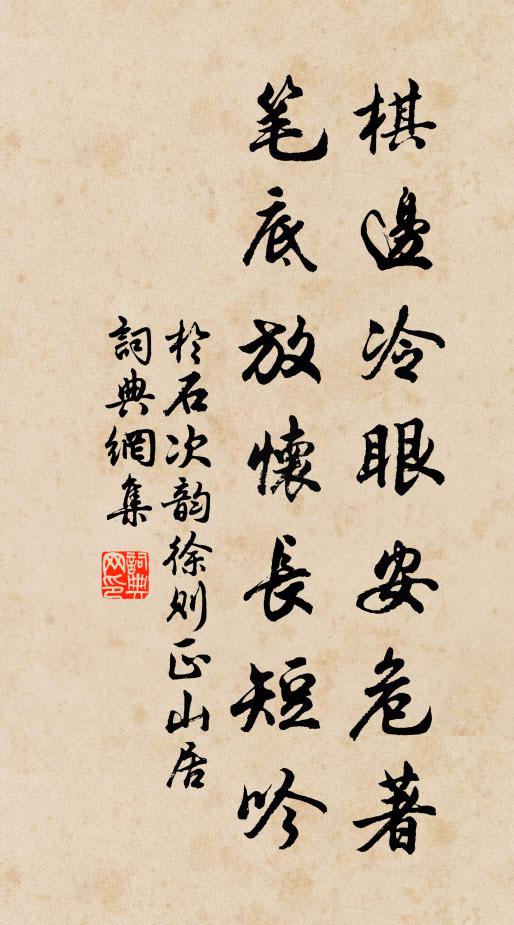 棋邊冷眼安危著
笔底放懷長短吟
於石次韵徐则正山居
詞典網集
詞典
网印